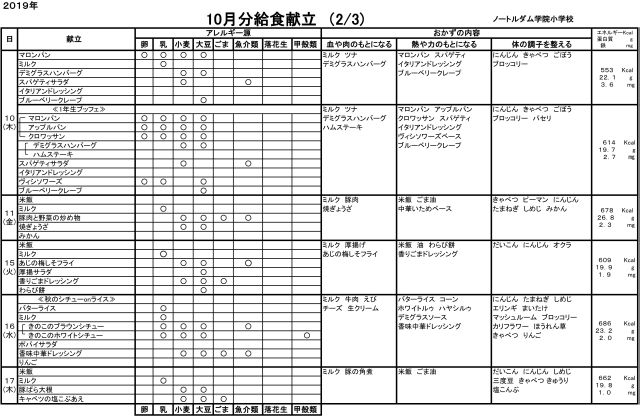 2019年
10月分給食献立 (2/3)
ノートルダム学院小学校
日 献立 アレルギー源 おかずの内容 エネルギーKcal
卵 乳 小麦 大豆 ごま 魚介類 落花生 甲殻類 血や肉のもとになる 熱や力のもとになる 体の調子を整える 蛋白質 g
鉄 mg
マロンパン ○ ○ ○ ○ ミルク ツナ マロンパン スパゲティ にんじん きゃべつ ごぼう
ミルク ○ デミグラスハンバーグ イタリアンドレッシング ブロッコリー
デミグラスハンバーグ ○ ○ ブルーベリークレープ 553 Kcal
スパゲティサラダ ○ ○ 22.1 g
イタリアンドレッシング 3.6 mg
ブルーベリークレープ ○
10
(木)
≪1年生ブッフェ≫ ミルク ツナ マロンパン アップルパン にんじん きゃべつ ごぼう
マロンパン ○ ○ ○ ○ デミグラスハンバーグ クロワッサン スパゲティ ブロッコリー パセリ
アップルパン ○ ○ ○ ○ ハムステーキ イタリアンドレッシング
クロワッサン ○ ○ ○ ○ ヴィシソワーズベース
デミグラスハンバーグ ○ ○ ブルーベリークレープ 614 Kcal
ハムステーキ 19.7 g
スパゲティサラダ ○ ○ 2.7 mg
イタリアンドレッシング
ヴィシソワーズ ○ ○ ○
ブルーベリークレープ ○
11
(金)
米飯 ミルク 豚肉 米飯 ごま油 きゃべつ ピーマン にんじん
ミルク ○ 焼ぎょうざ 中華いためベース たまねぎ しめじ みかん 678 Kcal
豚肉と野菜の炒め物 ○ ○ ○ ○ 26.8 g
焼ぎょうざ ○ ○ ○ 2.3 mg
みかん
15
(火)
米飯 ミルク 厚揚げ 米飯 油 わらび餅 だいこん にんじん オクラ
ミルク ○ あじの梅しそフライ 香りごまドレッシング
あじの梅しそフライ ○ ○ ○ 609 Kcal
厚揚サラダ ○ 19.9 g
香りごまドレッシング ○ ○ ○ 1.9 mg
わらび餅 ○
16
(水)
≪秋のシチューonライス≫ ミルク 牛肉 えび バターライス コーン にんじん たまねぎ しめじ
バターライス ○ チーズ 生クリーム ホワイトルゥ ハヤシルゥ エリンギ まいたけ
ミルク ○ デミグラスソース マッシュルーム ブロッコリー
きのこのブラウンシチュー ○ ○ ○ ○ 香味中華ドレッシング カリフラワー ほうれん草 686 Kcal
きのこのホワイトシチュー ○ ○ ○ ○ きゃべつ りんご 23.2 g
ポパイサラダ 2.0 mg
香味中華ドレッシング ○ ○ ○ ○
りんご
17
(木)
米飯 ミルク 豚の角煮 米飯 ごま油 だいこん にんじん しめじ
ミルク ○ 三度豆 きゃべつ きゅうり 662 Kcal
豚ばら大根 ○ ○ 塩こんぶ 19.8 g
キャベツの塩こぶあえ ○ ○ ○ 1.0 mg
卵 乳 小麦 大豆 ごま 魚介類 落花生 甲殻類